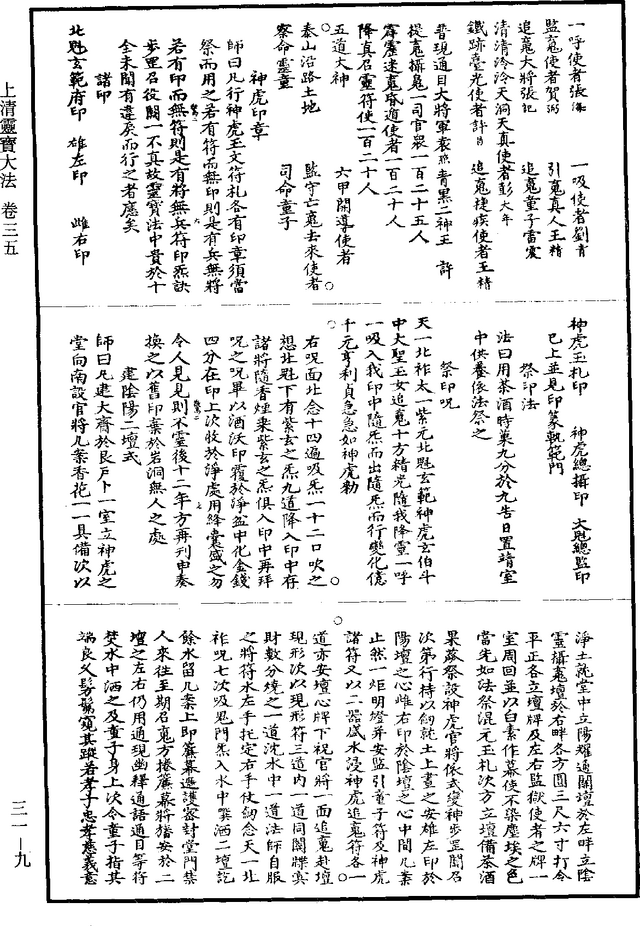 一呼使者張
一吸使者劉青
監䰟使者賀
引䰟真人王精
追䰟大將張記
追䰟童子雷震
清清泠泠天洞天真使者彭大年
鐵跡臺光使者許
追䰟捷疾使者王精
普現通目大將軍裴
青黑二神王
許
提䰟攝䰟一司官眾一百二十五人
霹靂迷䰟昏道使者一百二十人
降真召靈符使一百二十人
五道大神
六甲開導使者
泰山沿路土地
監守亡䰟去來使者
察命靈童
司命童子
神虎印章
師曰凡行神虎玉文符札各有印章須當
祭而用之若有符而無印則是有兵無將
若有印而無符則是有將無兵符印炁訣
步罡召役闕一不真故靈寶法中貴於十
全未聞有違矣而行之者應矣
諸印
北魁玄範府印
雄左印
雌右印
神虎玉札印
神虎總攝印
大魁總監印
已上並見印篆軌範門
祭印法
法曰用茶酒時菓九分於九告日置靖室
中供養依法祭之
祭印呪
天一北祚太一紫元北魁玄範神虎玄伯斗
中大聖玉女追䰟十方精光隨我降靈一呼
一吸入我印中隨炁而出隨炁而行變化億
千元亨利貞急急如神虎勑
右呪面北念十四遍吸炁一十二口吹之
想北魁下有紫玄之炁九道降入印中存
諸將隨香煙来紫玄之炁俱入印中再拜
呪之呪畢以酒沃印覆於淨盆中化金錢
四分在印上次收於淨處用絳囊盛之勿
令人見見則不靈後十二年方再刊申奏
換之以舊印棄於岩洞無人之處
建陰陽二壇式
師曰凡建大齋於艮戶卜一室立神虎之
堂向南設官將几案香花一一具備次以
淨土就堂中立陽耀通關壇於左畔立陰
靈攝䰟壇於右畔各方圓三尺六寸打令
平正各立壇牌及左右監獄使者之牌一
室周回並以白素作幕使不染塵埃之色
當先如法祭混元玉札次方立壇備茶酒
果蔬祭設神虎官將依式變神步罡關召
次第行持以劒就土上畫之安雄左印於
陽壇之心雌右印於陰壇之心中間几案
止然一炬明燈并安監引童子符及神虎
諸符又以二器盛水浸神虎追䰟符各一
道亦安壇心牌下祝官將一面追䰟赴壇
現形次以現形符三道內一道同關牒㝠
財數分燒之一道沈水中一道法師自服
之將符水左手托定右手仗劒念天一北
祚呪七次吸鬼門炁入水中噀洒二壇訖
餘水留几案上即簾幕遮護密封堂門禁
人來往至期召䰟方捲簾幕將猎安於二
壇之左右仍用通現幽釋通語通目等符
焚水中洒之及童子身上次令童子指其
端良久髣髴窺其蹤若孝子忠孝慈義意
上清靈寶大法
卷三五
三一—九